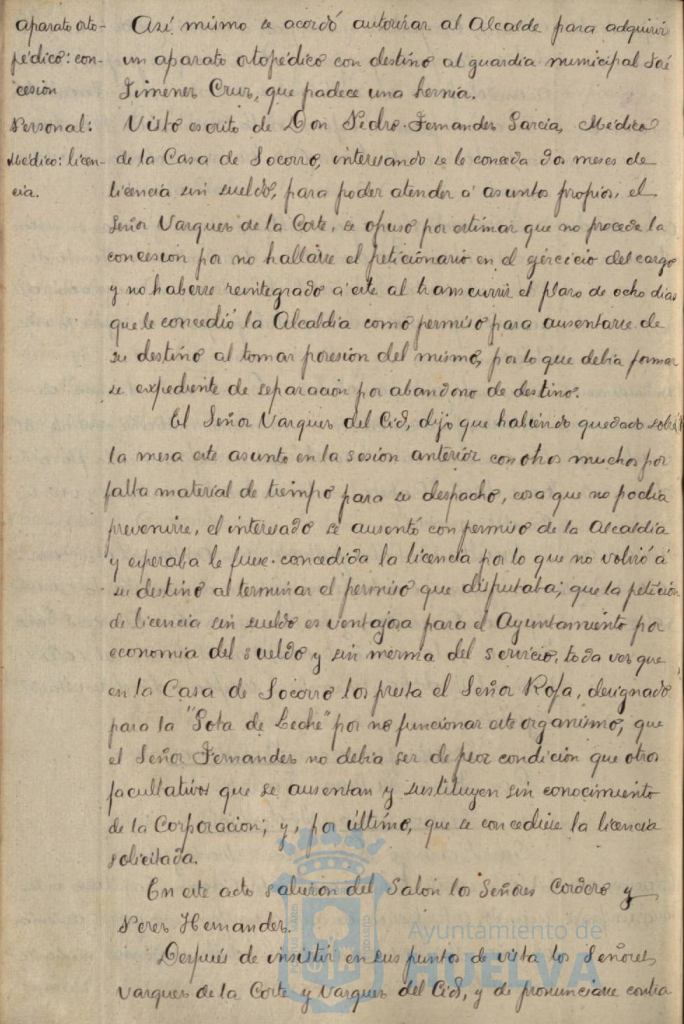 aparato orto-
pédico: con-
cesión
Así mismo se acordó autorizar al Alcalde para adquirir
un aparato ortopédico con destino al guardia municipal José
Jimenez Cruz, que padece una hernia.
Personal:
Médico: licen-
cia.
Visto escrito de Don Pedro Fernandez Garcia, Médico
de la Casa de Socorro, interesando se le conceda dos meses de
licencia sin sueldo, para poder atender á asuntos propios, el
Señor Vazquez de la Corte, se opuso por estimar que no procede la
concesión por no hallarse el peticionario en el ejercicio del cargo
y no haberse reintegrado á este al transcurrir el plazo de ocho dias
que le concedió la Alcaldía como permiso para ausentarse de
su destino al tomar posesión del mismo, por lo que debia formar
se expediente de separación por abandono de destino.
El Señor Vazquez del Cid, dijo que habiendo quedado sobre
la mesa este asunto en la sesión anterior con otros muchos por
falta material de tiempo para su despacho, cosa que no podia
prevenirse, el interesado se ausentó con permiso de la Alcaldía
y esperaba le fuese concedida la licencia por lo que no volvió á
su destino al terminar el permiso que disfrutaba; que la petición
de licencia sin sueldo es ventajosa para el Ayuntamiento por
economia del sueldo y sin merma del servicio, toda vez que
en la Casa de Socorro los presta el Señor Rofa, designado
para la "Gota de Leche" por no funcionar este organismo, que
el Señor Fernandez no debia ser de peor condición que otros
facultativos que se ausentan y sustituyen sin conocimiento
de la Corporacion; y, por último, que se concediese la licencia
solicitada.
En este acto salieron del Salón los Señores Cordero y
Perez Hernandez.
Después de insistir en sus puntos de vista los Señores
Vazquez de la Corte y Vazquez del Cid, y de pronunciarse contra
Ayuntamiento de
HUELVA